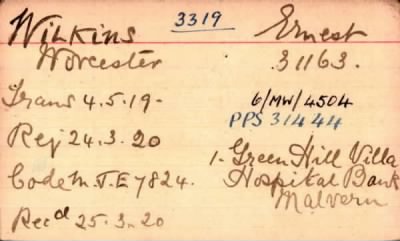 3319
WILKINS Ernest
Worcester 31163.
Trans 4.5.19-
6/MW/4504
PPS 31444
Rej 24.3.20
1. Green Hill Villa
Code M.T.E 7824. Hospital Bank
Malvern
Recd 25.3.20